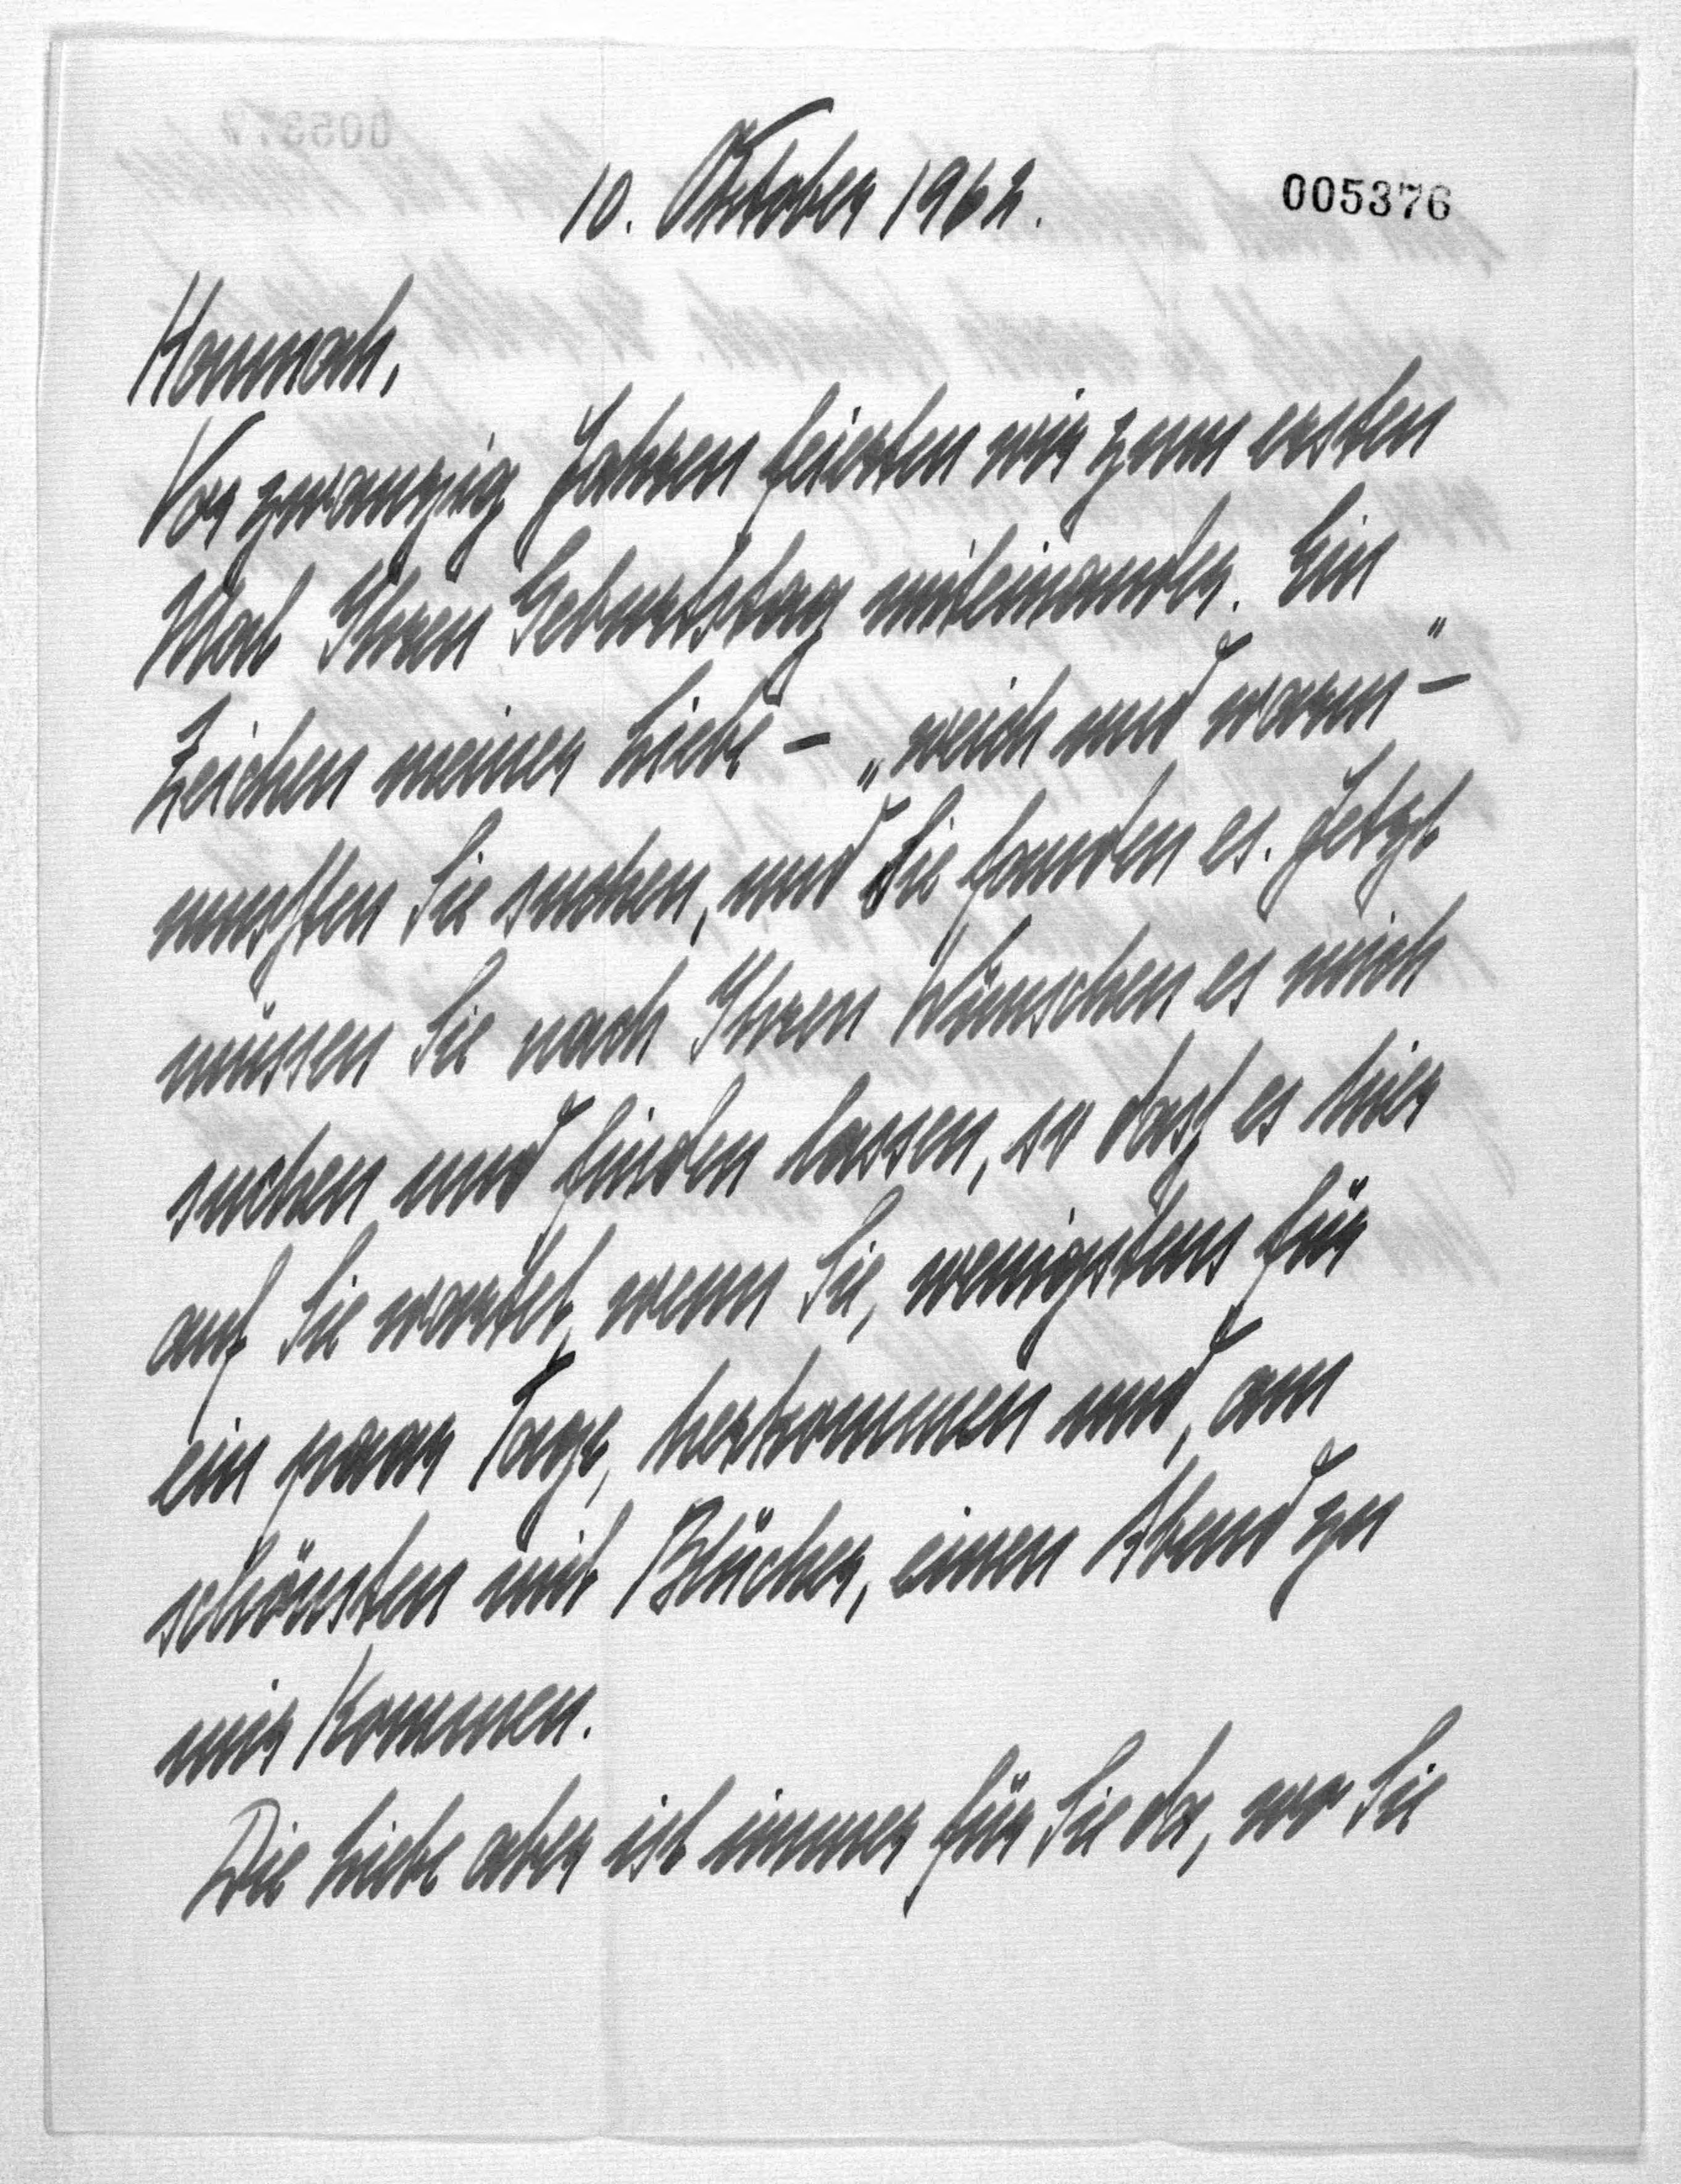 10. Oktober 1962.
005376
Hannah,
Vor zwanzig Jahren feierten wir zum ersten
Mal Ihren Geburtstag miteinander. Ein
Zeichen meiner Liebe – „weich und warm" –
mussten Sie suchen, und Sie fanden es. Jetzt
müssen Sie nach Ihren Wünschen es mich
suchen und finden lassen, so dass es hier
auf Sie wartet, wenn Sie, wenigstens für
ein paar Tage, herkommen und, am
schönsten mit Blücher, einen Abend zu
mir kommen.
Die Liebe aber ist immer für Sie da, wo Sie